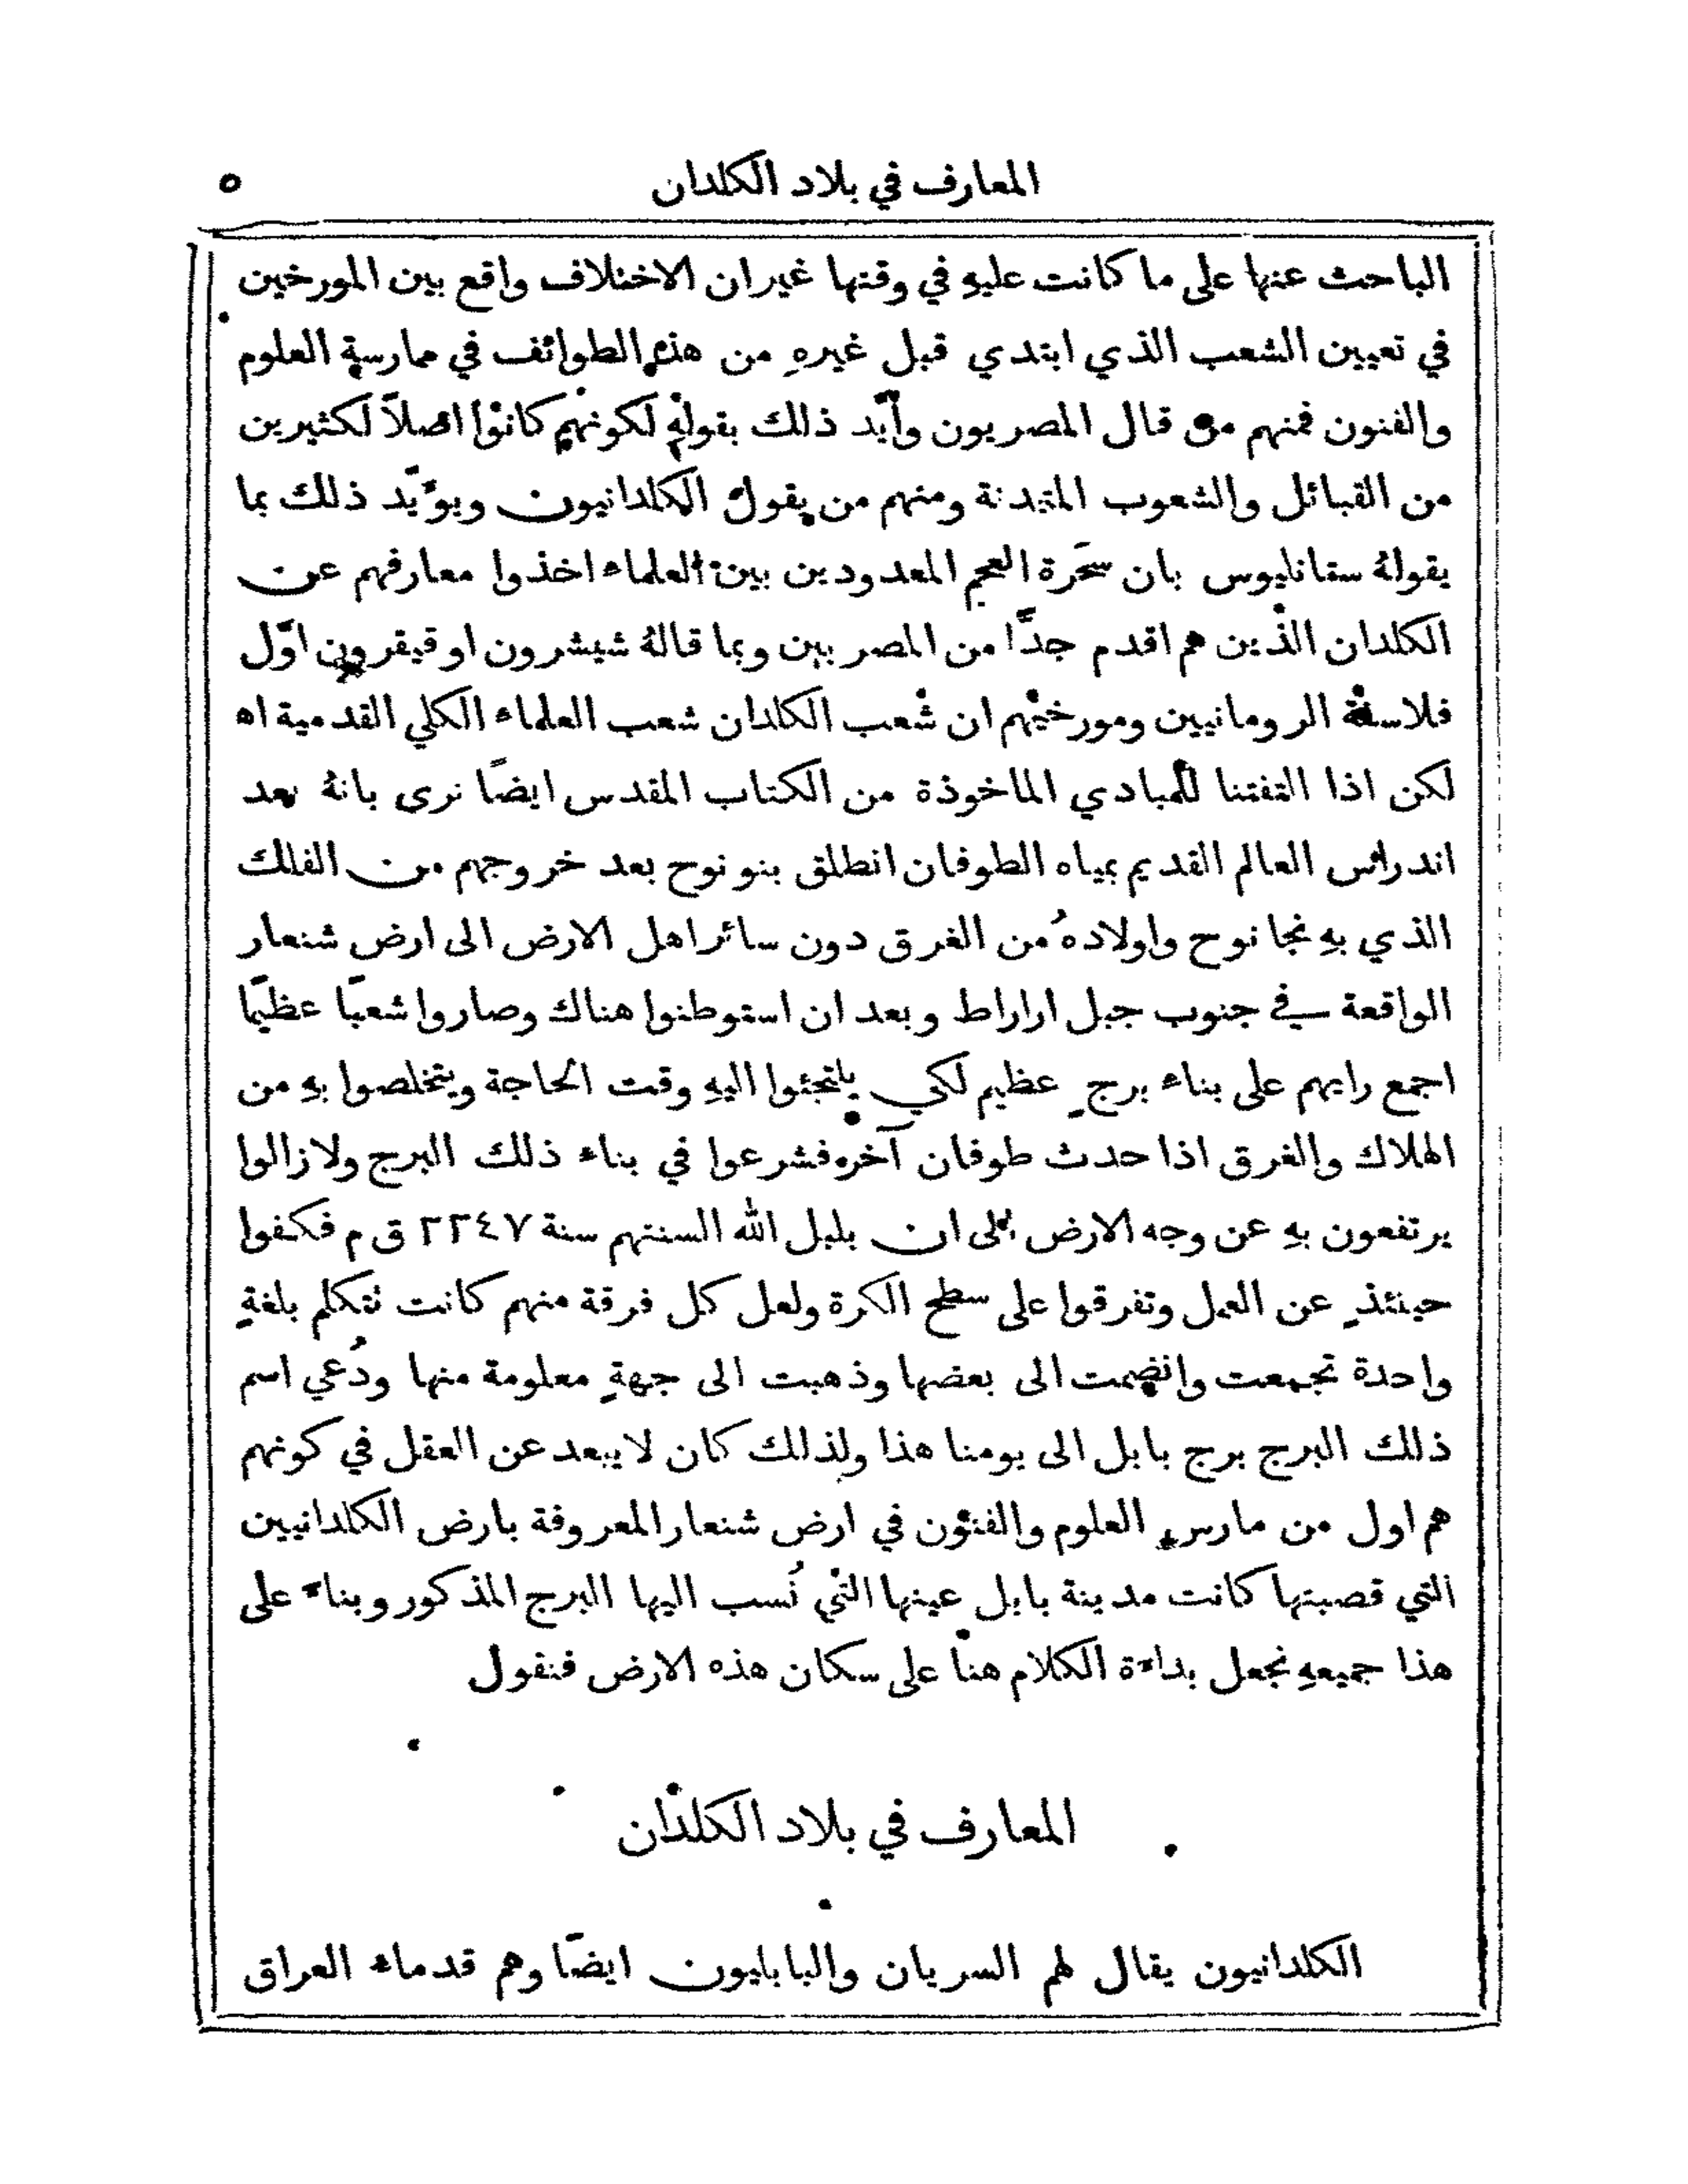 المعارف في بلاد الكلدان ٥
الباحث عنها على ما كانت عليهِ في وقتها غير ان الاختلاف واقع بين المورخين
في تعيين الشعب الذي ابتدي قبل غيرهِ من هذه الطوائف في ممارسة العلوم
والفنون فمنهم من قال المصريون وأيّد ذلك بقولهِ لكونهم كانوا اصلاً لكثيرين
من القبائل والشعوب المتمدنة ومنهم من يقول الكلدانيون ويويّد ذلك بما
يقولهُ ستانليوس بان سحَرة العجم المعدودين بين العلماء اخذوا معارفهم عن
الكلدان الذين هم اقدم جدًّا من المصريين وبما قالهُ شيشرون او قيقرون اوّل
فلاسفة الرومانيين ومورخيهم ان شعب الكلدان شعب العلماء الكلي القدمية اه
لكن اذا التفتنا للمبادي الماخوذة من الكتاب المقدس ايضًا نرى بانهُ بعد
اندراس العالم القديم بمياه الطوفان انطلق بنو نوح بعد خروجهم من الفلك
الذي بهِ نجا نوح واولادهُ من الغرق دون سائر اهل الارض الى ارض شنعار
الواقعة في جنوب جبل اراراط وبعد ان استوطنوا هناك وصاروا شعبًا عظيمًا
اجمع رايهم على بناء برجٍ عظيم لكي يلتجئوا اليهِ وقت الحاجة ويتخلصوا بهِ من
الهلاك والغرق اذا حدث طوفان آخر فشرعوا في بناء ذلك البرج ولا زالوا
يرتفعون بهِ عن وجه الارض الى ان بلبل الله السنتهم سنة ٢٢٤٧ ق م فكفوا
حينئذٍ عن العمل وتفرقوا على سطح الكرة ولعل كل فرقة منهم كانت تتكلم بلغةٍ
واحدة تجمعت وانضمت الى بعضها وذهبت الى جهةٍ معلومة منها ودُعي اسم
ذلك البرج برج بابل الى يومنا هذا ولذلك كان لا يبعد عن العقل في كونهم
هم اول من مارس العلوم والفنون في ارض شنعار المعروفة بارض الكلدانيين
التي قصبتها كانت مدينة بابل عينها التي نُسب اليها البرج المذكور وبناءً على
هذا جميعهِ نجعل بداءة الكلام هنا على سكان هذه الارض فنقول
المعارف في بلاد الكلدان
الكلدانيون يقال لهم السريان والبابليون ايضًا وهم قدماء العراق